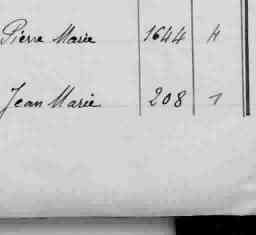 Pierre Marie 1644 4
Jean Marie 208 1